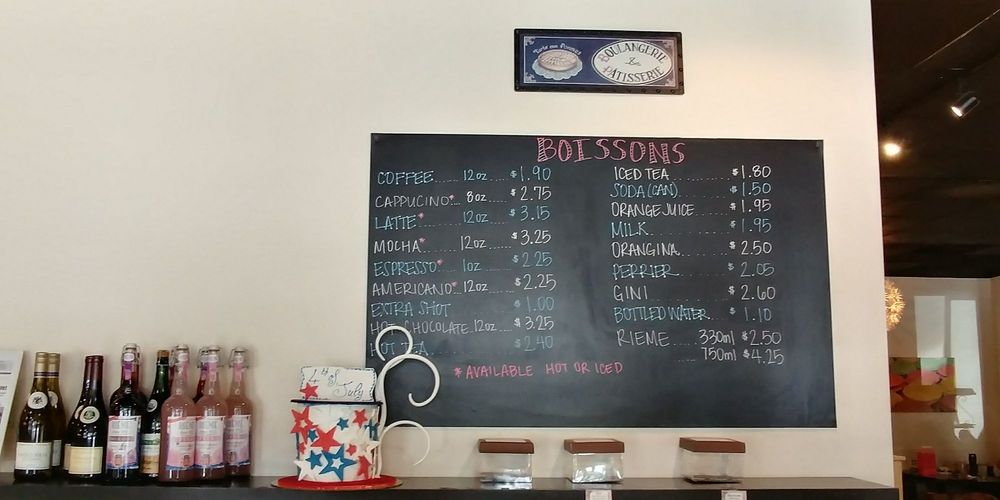 Tarte aux Pommes
BOULANGERIE
&
PATISSERIE
BOISSONS
COFFEE.....12oz....$1.90
CAPPUCINO*...8oz...$2.75
LATTE*.......12oz....$3.15
MOCHA*.......12oz....$3.25
ESPRESSO*....1oz....$2.25
AMERICANO*..12oz....$2.25
EXTRA SHOT........$1.00
HOT CHOCOLATE.12oz...$3.25
HOT TEA........$2.40
ICED TEA..........$1.80
SODA (CAN)........$1.50
ORANGE JUICE......$1.95
MILK..............$1.95
ORANGINA..........$2.50
PERRIER...........$2.05
GINI..............$2.60
BOTTLED WATER.....$1.10
RIEME.....330ml $2.50
.....750ml $4.25
*AVAILABLE HOT OR ICED
4th of
July
RIEME